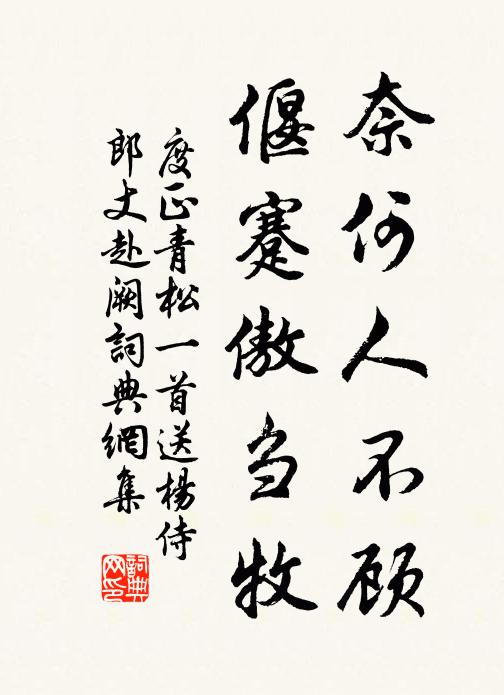 奈何人不顾
偃蹇傲刍牧
度正青松一首送楊侍
郎丈赴阙詞典網集
詞典
网印